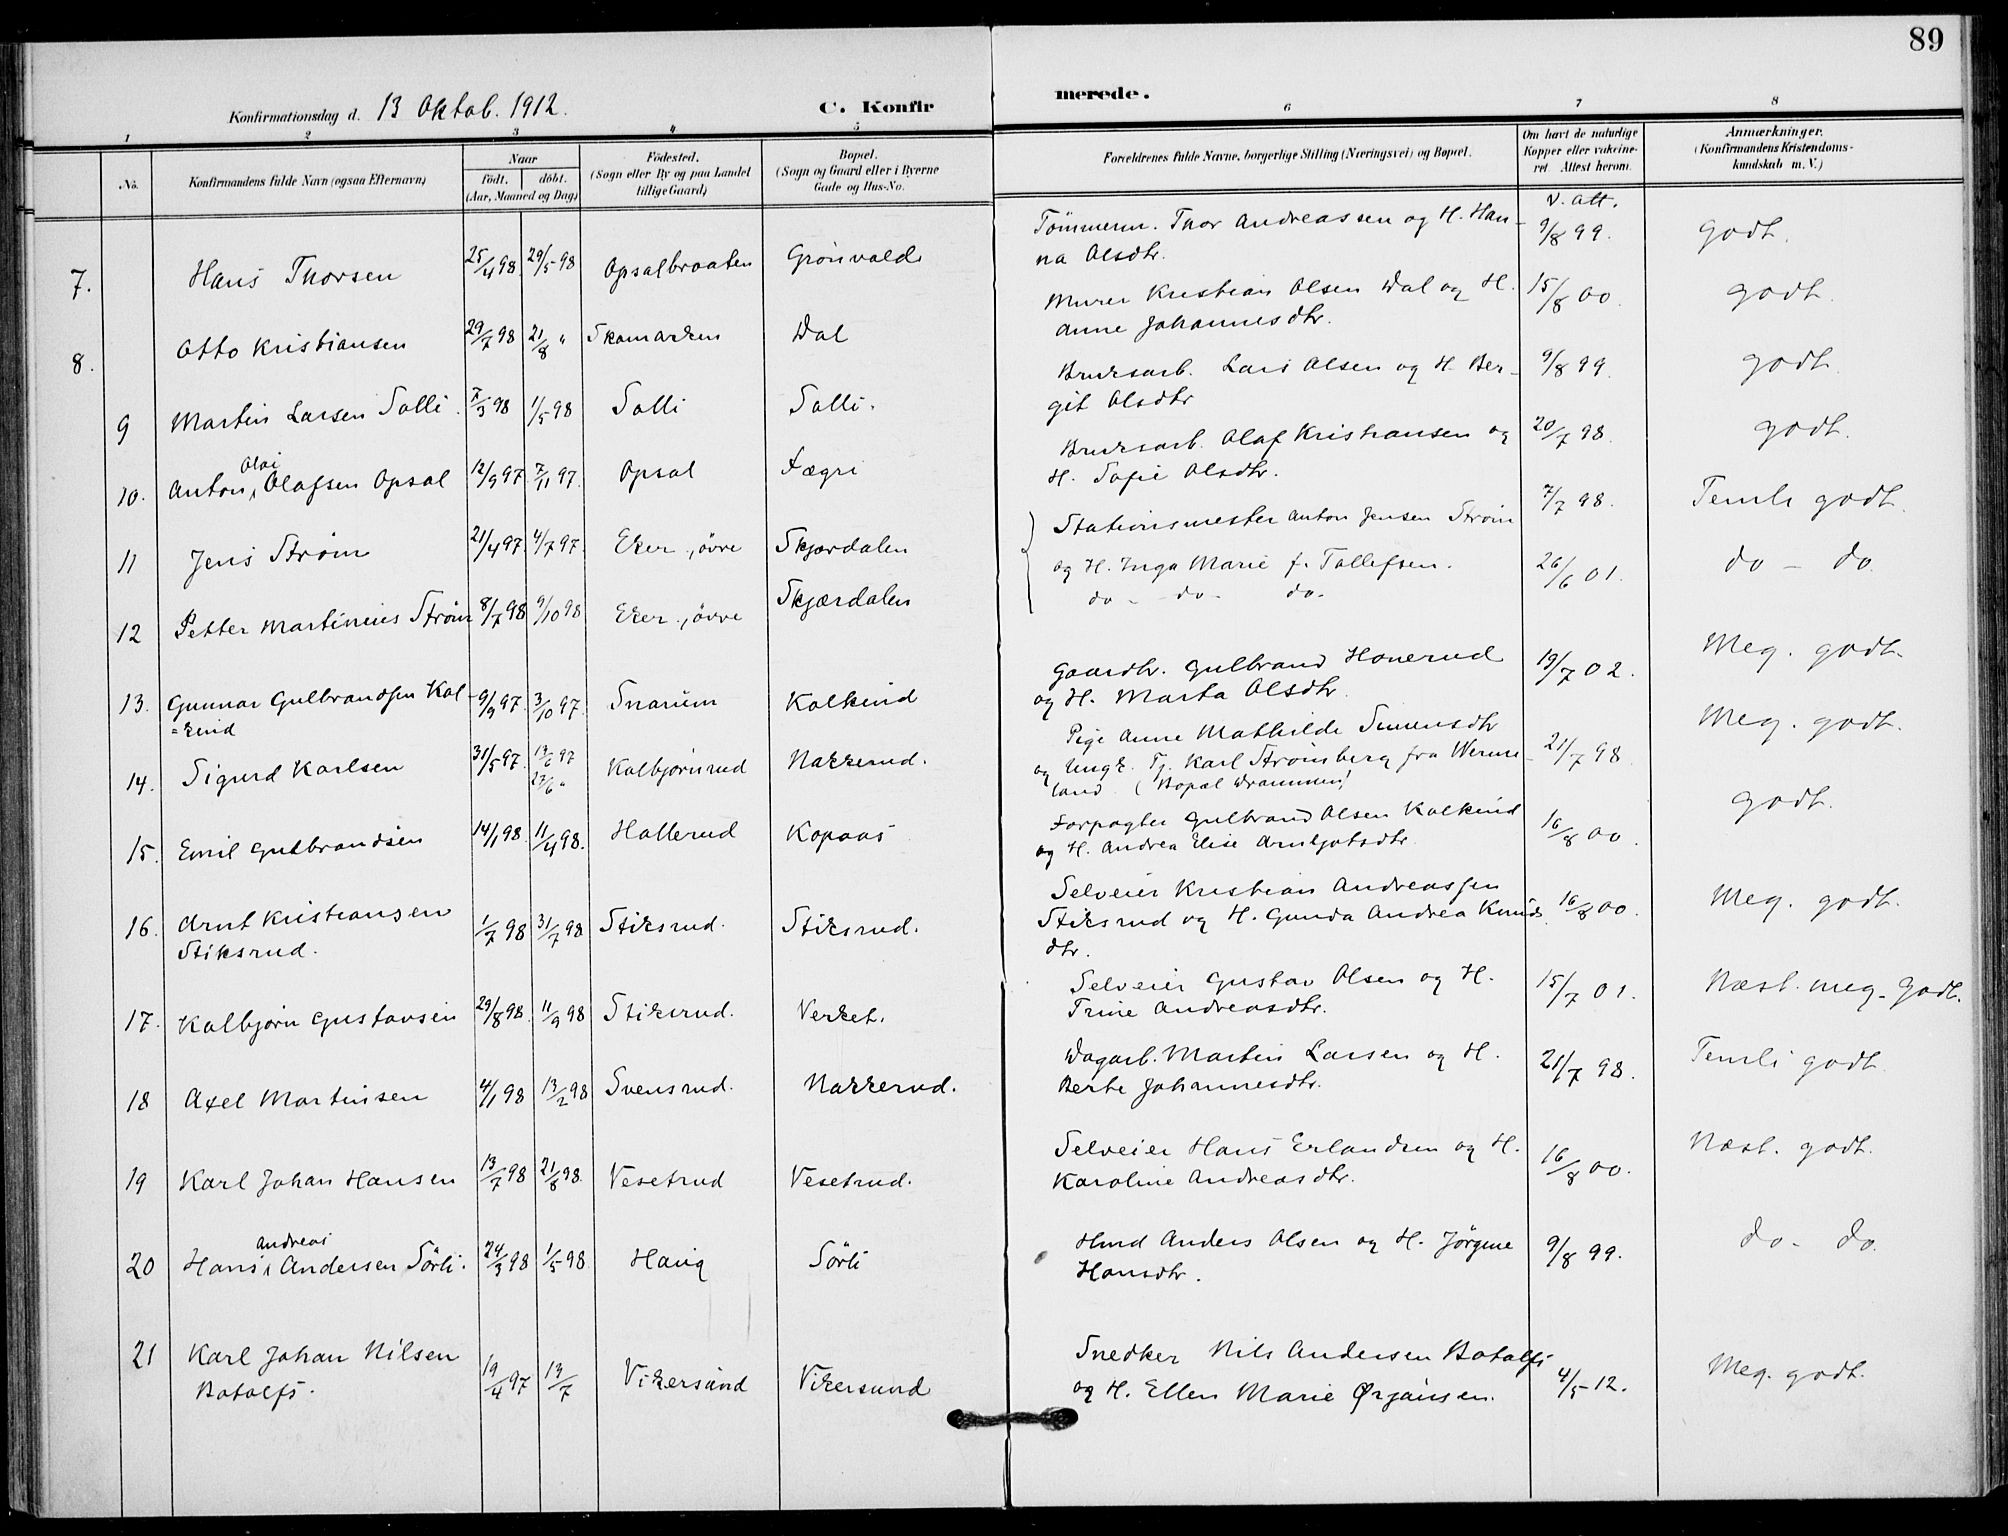 89
Konfirmationsdag d. 13 Oktob. 1912.
C. Konfirmerede.
1 2 3 4 5 6 7 8
No.
Konfirmandens fulde Navn (ogsaa Efternavn)
Naar
født. døbt.
(Aar, Maaned og Dag)
Fødested.
(Sogn eller By og paa Landet
tillige Gaard)
Bopæl.
(Sogn og Gaard eller i Byerne
Gade og Hus-No.
Forældrenes fulde Navne, borgerlige Stilling (Næringsvei) og Bopæl.
Om havt de naturlige
Kopper eller vakcine-
ret. Attest herom.
Anmærkninger.
(Konfirmandens Kristendoms-
kundskab m. V.)
7. Hans Thorsen 25/4 98 29/5 98 Opsalbraaten Grønvold Tømmerm. Thor Andreassen og H. Han-
na Olsdtr. V. att. 9/8 99. Godt.
8. Otto Kristiansen 29/7 98 21/8 " Skamarken Dal Murer Kristian Olsen Dal og H.
Anne Johannesdtr. 15/8 00. godt.
9 Martin Larsen Solli. 7/3 98 1/5 98 Solli Solli. Bruksarb. Lars Olsen og H. Ber-
git Olsdtr 9/8 99. godt.
10. Anton Olai Olafsen Opsal 12/9 97 7/11 97. Opsal Fægri Bruksarb. Olaf Kristiansen og
H. Sofie Olsdtr. 20/7 98. godt.
11 Jens Strøm 21/4 97. 4/7 97. Eker, øvre Skjærdalen Stationsmester Anton Jensen Strøm
og H. Inga Marie f. Tollefsen. 7/7 98. Temli godt.
12 Petter Martinius Strøm 8/7 98 9/10 98 Eker, øvre Skjærdalen do - do - do - 26/6 01. do - do
13. Gunnar Gulbrandsen Kol-
=kind 9/9 97. 3/10 97. Snarum Kolkind Gaardbr. Gulbrand Honerud
og H. Marta Olsdtr. 19/7 02. Meg. godt.
14. Sigurd Karlsen 31/5 97. 13/6 97
27/6 " Kolbjørnrud Nakkerud. Pige Anne Mathilde Simensdtr
og Ungk. Tj. Karl Strømsberg fra Werme-
land. (Bopæl Drammen) 21/7 98. Meg. godt.
15. Emil Gulbrandsen 14/1 98. 11/4 98. Hallerud Kopaas Forpagter Gulbrand Olsen Kolkind
og H. Andrea Elise Arnljotsdtr. 16/8 00. Godt.
16. Arnt Kristiansen
Stiksrud. 1/7 98 31/7 98 Stiksrud. Stiksrud. Selveier Kristian Andreassen
Stiksrud og H. Gunda Andrea Knuds
dtr. 16/8 00. Meg. godt.
17. Kolbjørn Gustavsen 29/8 98. 11/9 98 Stiksrud. Verket. Selveier Gustav Olsen og H.
Trine Andreasdtr. 15/7 01. Næst. meg. godt.
18 Axel Martinsen 4/1 98 13/2 98 Svensrud. Nakkerud. Dagarb. Martin Larsen og H.
Berte Johannesdtr. 21/7 98. Temli godt
19 Karl Johan Hansen 13/7 98 21/8 98. Vesetrud Vesetrud. Selveier Hans Erlandsen og H.
Karoline Andreasdtr. 16/8 00. Næst. godt.
20 Hans Andreas Andersen Sørli. 24/3 98 1/5 98 Haug Sørli Hmd Anders Olsen og H. Jørgine
Hansdtr. 9/8 99. do - do.
21 Karl Johan Nilsen
Botolfs. 19/4 97 19/7 Vikersund Vikersund Snedker Nils Andersen Botolfs
og H. Ellen Marie Ørjansen. 4/5 12. Meg. godt.